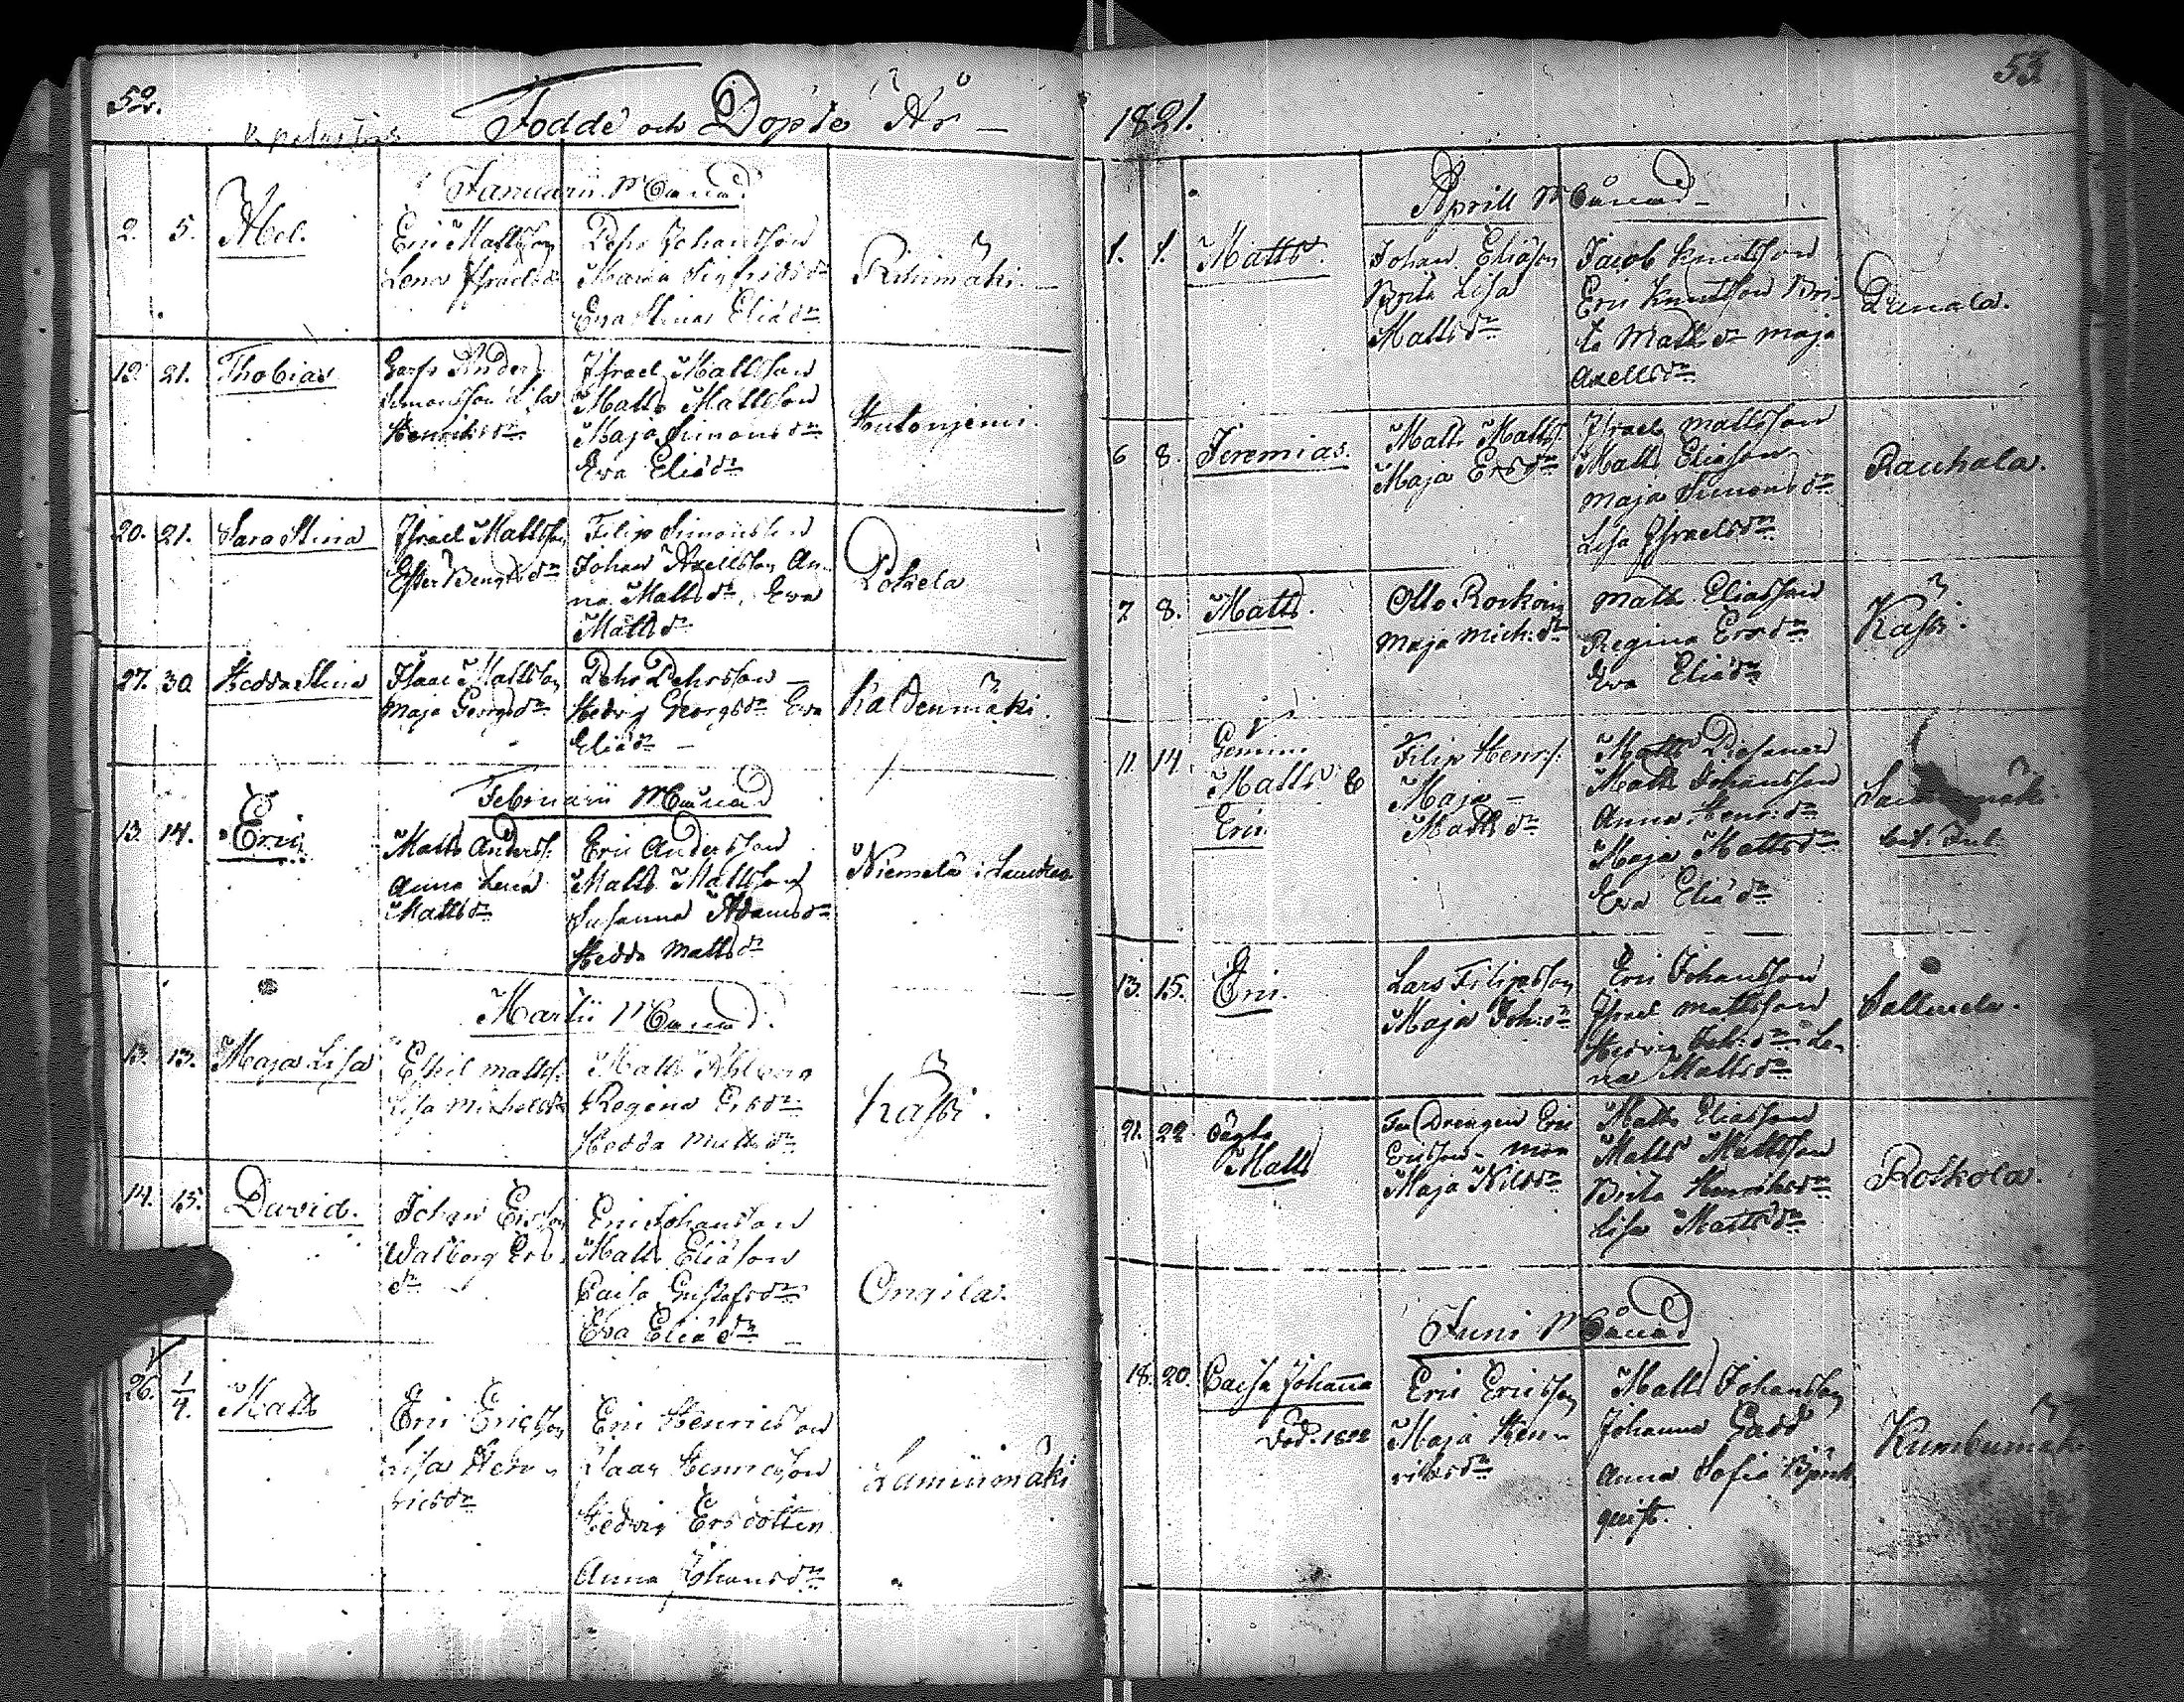 52.
Födde och Döpte År
Januarii Månad.
2. 5. Abel.
Eric Mattsson
Lena Israelsdr
Pehr Johansson
Maria Sigfridsdr
Eva Stina Eliædr
Riihimäki.
19. 21. Thobias
Anders
Simonsson Lisa
Henriksdr
Israel Mattsson
Matts Mattsson
Maja Simonsdr
Eva Eliædr
Hutonjemi.
20. 21. Sara Stina
Israel Mattsson
Ester Bengtsdr
Filip Simonsson
Johan Axellsson An
na Mattsdr, Eva
Mattsdr
Pokela
27. 30. Hedda Stina
Isaac Mattsson
Maja Georgsdr
Pehr Pehrsson
Hedvig Georgsdr Eva
Eliædr
Kaldenmäki.
Februarii Månad
13. 14. Eric
Matts Anderss.
Anna Lena
Mattsdr
Eric Andersson
Matts Mattsson
Susanna Adamsdr
Hedda Mattsdr
Niemelä i
Martii Månad.
13. 13. Maja Lisa
Eskil Mattss.
Lisa Michelsdr
Matts Ahlberg
Regina Ersdr
Hedda Mattsdr
Kassi.
14. 15. David.
Johan Ersson
Walborg Ers
dr
Eric Johansson
Matts Eliæson
Caisa Gustafsdr
Eva Eliædr
Ongila.
26. 1/4. Matts
Eric Ericsson
Lisa Hen
ricsdr
Eric Henricsson
Isaac Henricsson
Hedvig Ersdotter
Anna Johansdr
Lamiinmäki
53.
1821.
Aprill Månad
1. 1. Matts.
Johan Eliæson
Brita Lisa
Mattsdr
Jacob Knutsson
Eric Knutsson Bri
ta Mattsdr Maja
Axellsdr
Dunala.
6 8. Jeremias.
Matts Mattss.
Maja Ersdr
Israel Mattsson
Matts Eliæson
Maja Simonsdr
Lisa Israelsdr
Rauhala.
7 8. Matts.
Otto Roskoin
Maja Mich:dr
Matts Eliasson
Regina Ersdr
Eva Eliædr
Kassi.
11. 14. Gemini
Matts &
Eric
Filip Henrs.
Maja
Mattsdr
Matts
Matts Johansson
Anna Henr:dr
Maja Mattsdr
Eva Eliædr
13. 15. Eric.
Lars Filipsson
Maja Joh:dr
Eric Johansson
Israel Mattsson
Hedvig Joh:dr Le
na Mattsdr
Sallmela.
21. 22 oägta
Matts
Drengen Eric
Ericsson
Maja Nilsdr
Matts Eliasson
Matts Mattsson
Brita Henriksdr
Lisa Mattsdr
Roskola.
Juni Månad
18. 20. Caisa Johanna
Eric Ericsson
Maja Hen
riksdr
Matts Johansson
Johanna Gadd
Anna Sofia Björk
quist.
Kumbumäki